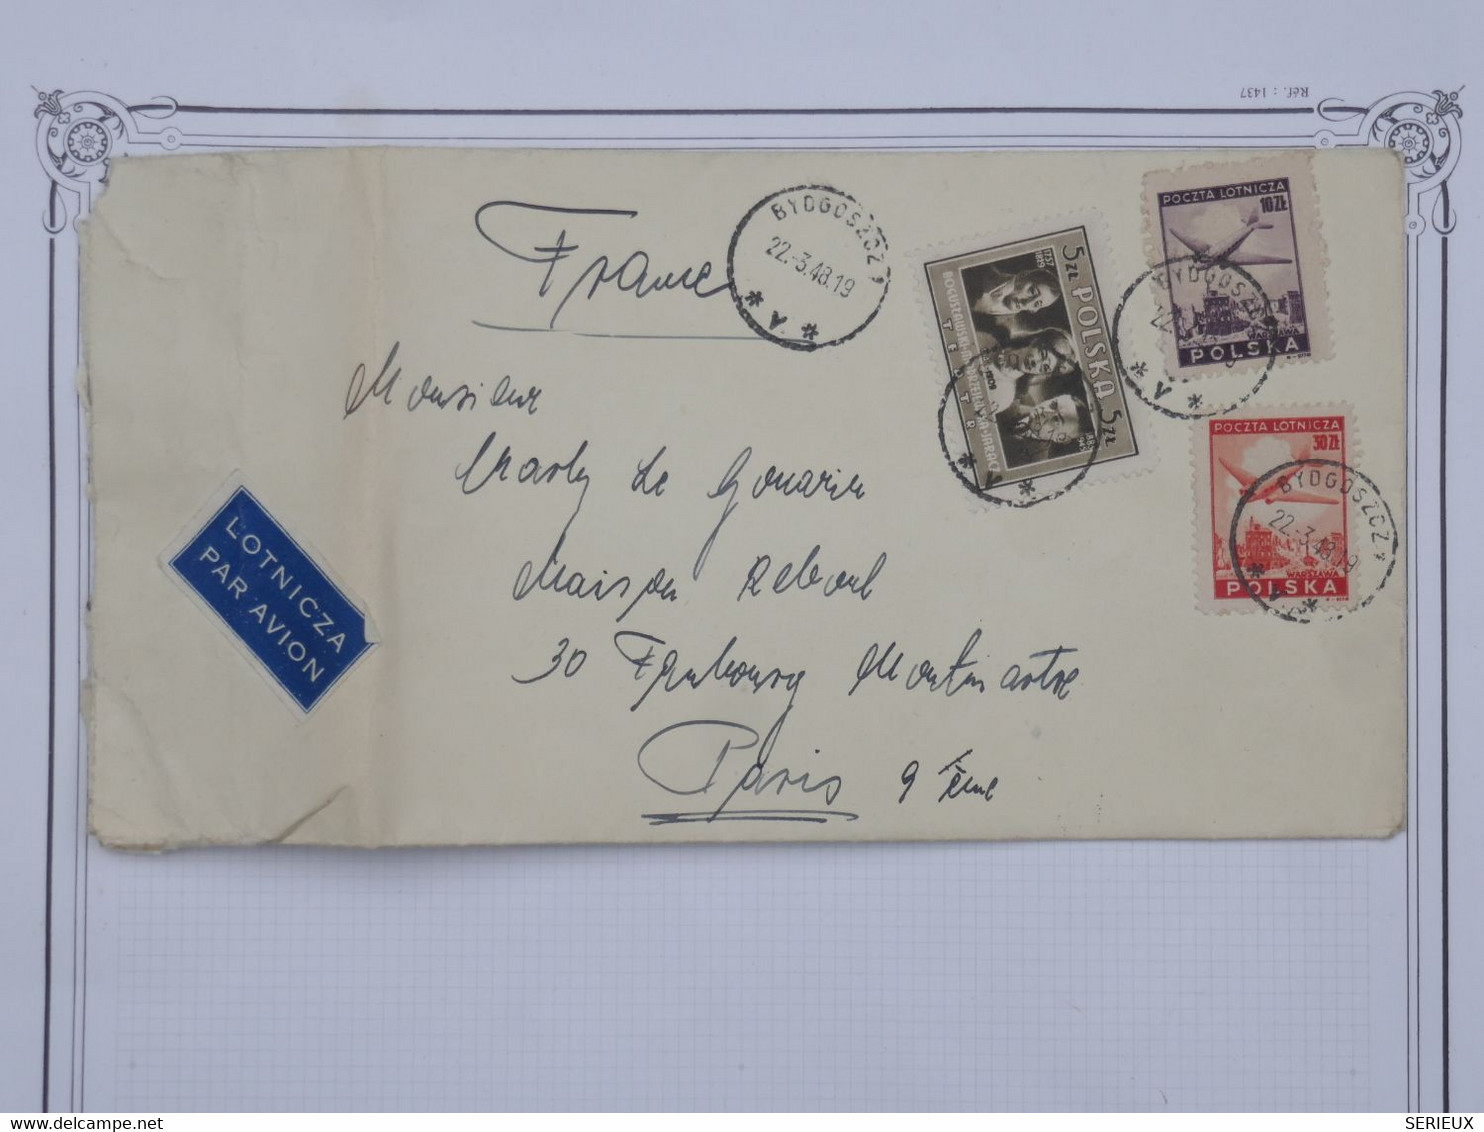 Réf. : 1437
France
BYDGOSZCZ 1
22.-3.48.19
* A *
5 ZŁ POLSKA 5 ZŁ
1757
1829
TEATR
POCZTA LOTNICZA
10ZŁ
WARSZAWA
POLSKA
BYDGOSZCZ
* A *
* A *
POCZTA LOTNICZA
30ZŁ
WARSZAWA
POLSKA
BYDGOSZCZ 1
22.-3.48.19
* A *
Monsieur
Le
Maison Reboul
30 Faubourg Montmartre
Paris 9 ème
LOTNICZA
PAR AVION
delcampe.net
SERIEUX